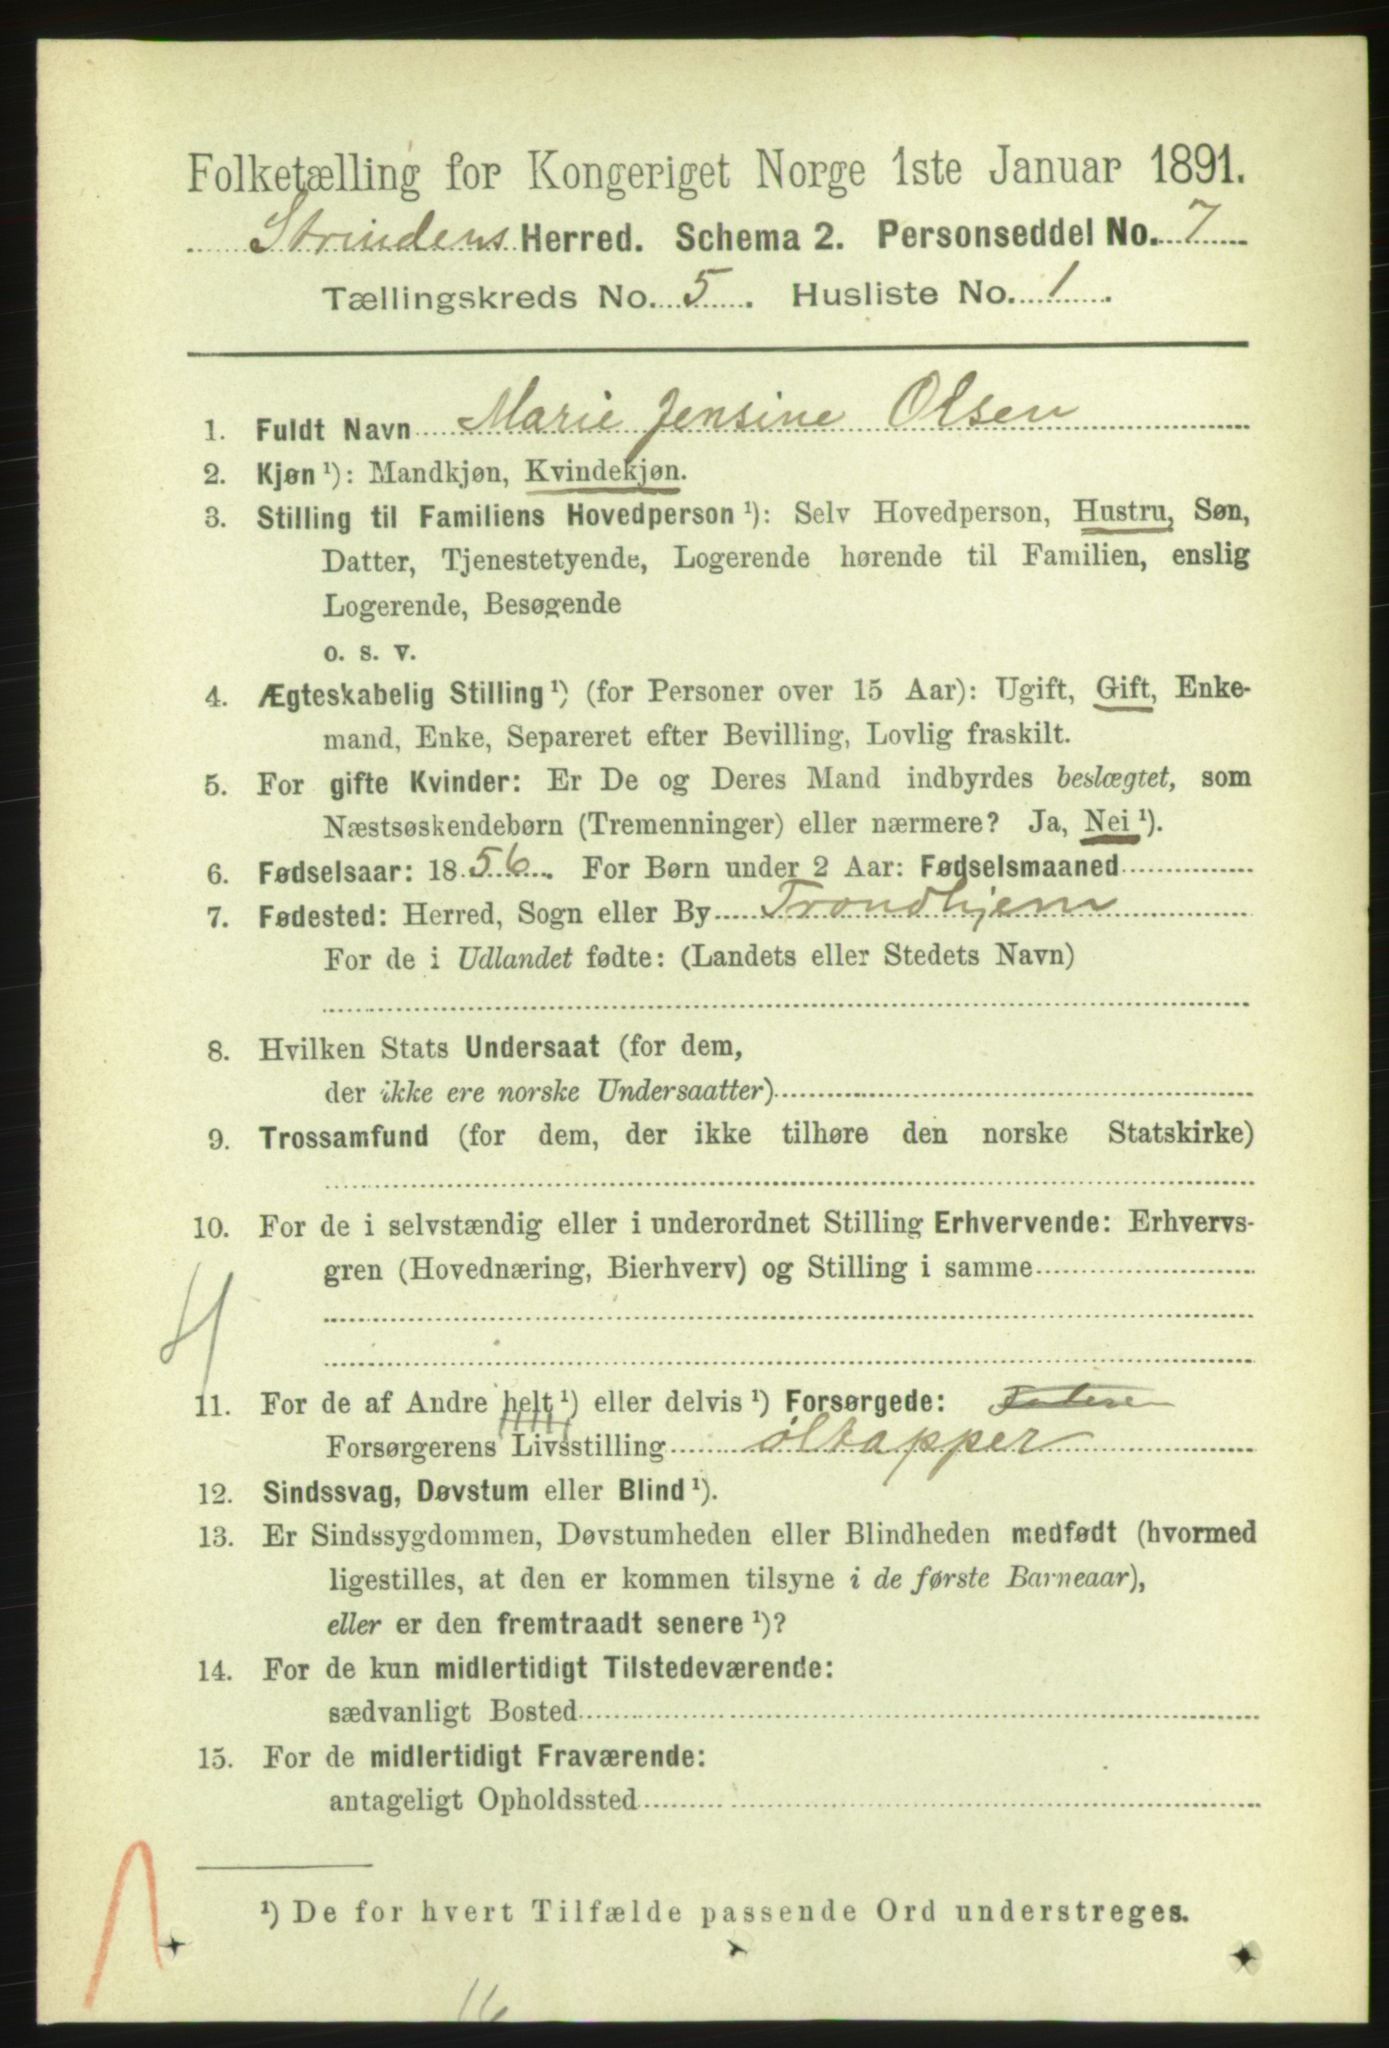 Folketælling for Kongeriget Norge 1ste Januar 1891.
Strindens Herred. Schema 2. Personseddel No. 7
Tællingskreds No. 5. Husliste No. 1.
1. Fuldt Navn Marie Jensine Olsen
2. Kjøn ¹): Mandkjøn, Kvindekjøn.
3. Stilling til Familiens Hovedperson ¹): Selv Hovedperson, Hustru, Søn,
Datter, Tjenestetyende, Logerende hørende til Familien, enslig
Logerende, Besøgende
o. s. v.
4. Ægteskabelig Stilling ¹) (for Personer over 15 Aar): Ugift, Gift, Enke-
mand, Enke, Separeret efter Bevilling, Lovlig fraskilt.
5. For gifte Kvinder: Er De og Deres Mand indbyrdes beslægtet, som
Næstsøskendebørn (Tremenninger) eller nærmere? Ja, Nei ¹).
6. Fødselsaar: 1856. For Børn under 2 Aar: Fødselsmaaned
7. Fødested: Herred, Sogn eller By Trondhjem
For de i Udlandet fødte: (Landets eller Stedets Navn)
8. Hvilken Stats Undersaat (for dem,
der ikke ere norske Undersaatter)
9. Trossamfund (for dem, der ikke tilhøre den norske Statskirke)
10. For de i selvstændig eller i underordnet Stilling Erhvervende: Erhvervs-
gren (Hovednæring, Bierhverv) og Stilling i samme
11. For de af Andre helt ¹) eller delvis ¹) Forsørgede:
Forsørgerens Livsstilling øltapper
12. Sindssvag, Døvstum eller Blind ¹).
13. Er Sindssygdommen, Døvstumheden eller Blindheden medfødt (hvormed
ligestilles, at den er kommen tilsyne i de første Barneaar),
eller er den fremtraadt senere ¹)?
14. For de kun midlertidigt Tilstedeværende:
sædvanligt Bosted
15. For de midlertidigt Fraværende:
antageligt Opholdssted
¹) De for hvert Tilfælde passende Ord understreges.
16